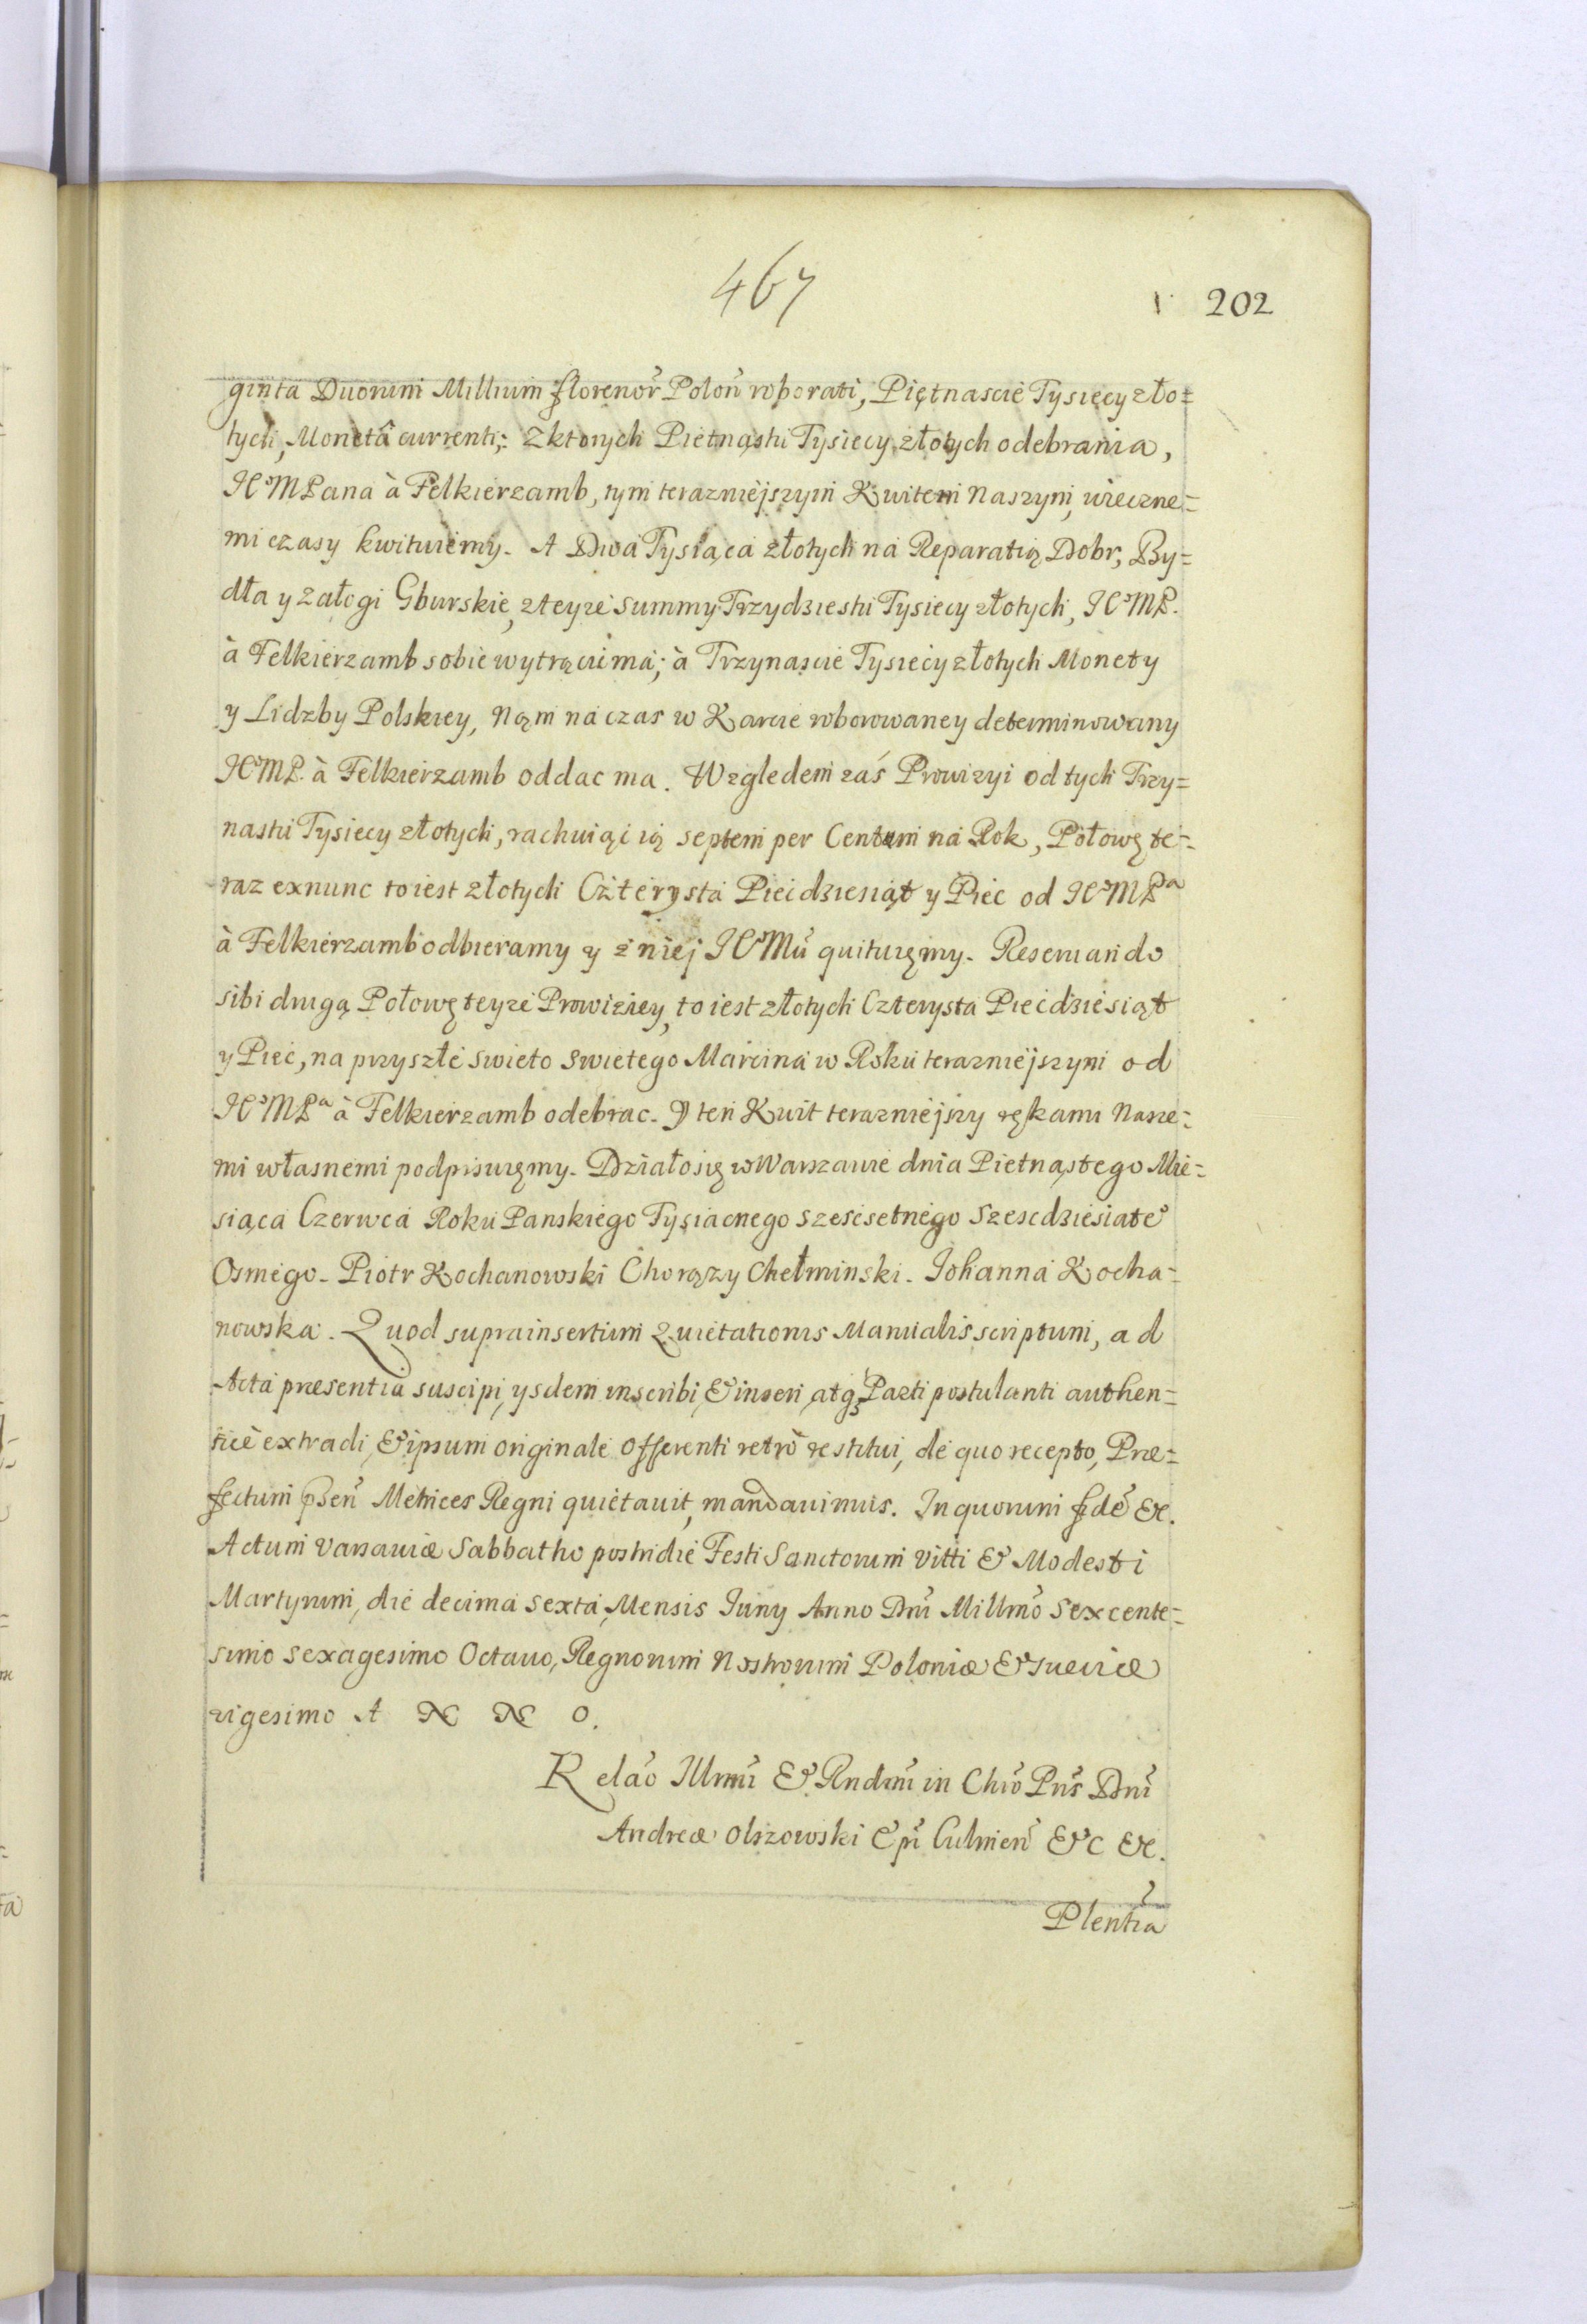 467
202
ginta Duorum Millium florenor̃ Poloñ roborati, Piętnascie Tysięcy zło=
tych, Monetâ currenti; Zktorych Pietnąstu Tysiecy złotych odebrania,
JEoMPana à Felkierzamb, tym terazniejszym Kwitem Naszym, wieczne=
mi czasy kwituiemy. A Dwa Tysiąca złotych na Reparatią Dobr, By=
dła y załogi Gburskie, zteyże summy Trzydziestu Tysiecy złotych, JEoMP.
à Felkierzamb sobie wytrącic má; à Trzynascie Tysiecy złotych Monety
y Lidzby Polskiey, Nąm na czas w Karcie roborowaney determinowany
JEoMP. à Felkierzamb oddac ma. Wzgledem zaś Prowizyi od tych Trzy=
nastu Tysiecy złotych, rachuiąc ią septem per Centum na Rok, Połowę te=
raz exnunc toiest złotych Czterysta Piecdziesiąt y Piec od JEoMPa
à Felkierzamb odbieramy y z niej JEoMũ quituięmy. Reseruando
sibi drugą Połowę teyze Prowiziey, to iest złotych Czterysta Piecdziesiąt
y Piec, na przyszłe swieto Swietego Marcina w Roku terazniejszym od
JEoMPa à Felkierzamb odebrac. Y ten Kwit terazniejszy rękami Nasze=
mi własnemi podpisuięmy. Działosię wWarszawie dnia Pietnąstego Mie=
siąca Czerwca Roku Panskiego Tysiacnego szescsetnego Szescdziesiateo
Osmego. Piotr Kochanowski Chorąży Chełminski. Johanna Kocha=
nowska. Quod suprainsertum Quietationis Manualis scriptum, ad
Acta praesentia suscipi, ysdem inscribi, & inseri, atq3 Parti postulanti authen=
ticè extradi, & ipsum originale Offerenti retrò restitui, de quo recepto, Prae=
fectum p̃señ Metrices Regni quietauit, mandauimus. In quorum fidẽ &c.
Actum Varsauiae Sabbatho postridie Festi Sanctorum Vitti & Modesti
Martyrum, die decima sexta, Mensis Juny Anno Dñi Millmõ Sexcente=
simo sexagesimo Octauo, Regnorum Nostrorum Poloniae & Sueciae
vigesimo A N N O.
Relaõ Illmĩ & Rndmĩ in Chrõ Prĩs Dñi
Andreae Olszowski Epĩ Culmeñ &c &c.
Plentĩa